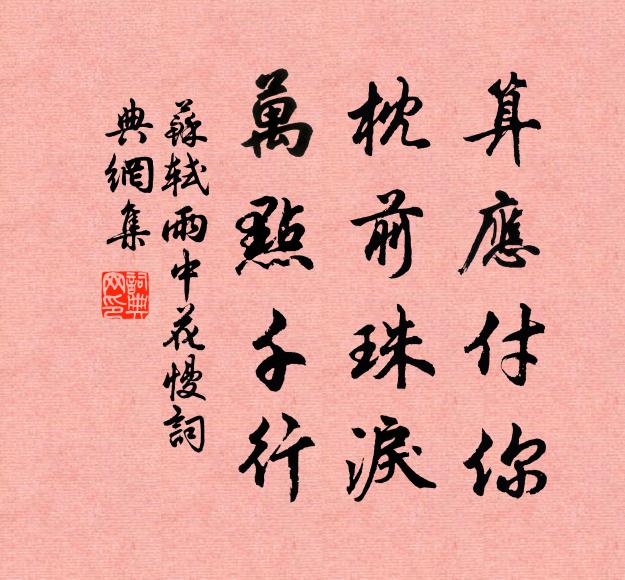 算應付你
枕前珠淚
萬點千行
蘇軾雨中花慢詞
典網集
詞典
网印